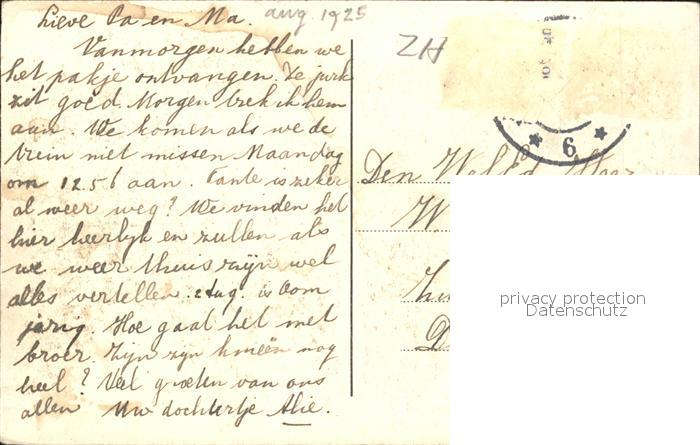 Lieve Pa en Ma. aug 1925
Vanmorgen hebben we
het pakje ontvangen. De jurk
zit goed. Morgen trek ik hem
aan. We komen als we de
trein niet missen Maandag
om 12.56 aan. Tante is zeker
al weer weg? We vinden het
hier heerlijk en zullen als
we weer thuis zijn wel
alles vertellen. Aug. is Oom
jarig. Hoe gaat het met
broer. Zijn zijn knieën nog
heel? Veel groeten van ons
allen Uw dochtertje Alie.
ZH
6
Den
W
D
privacy protection
Datenschutz